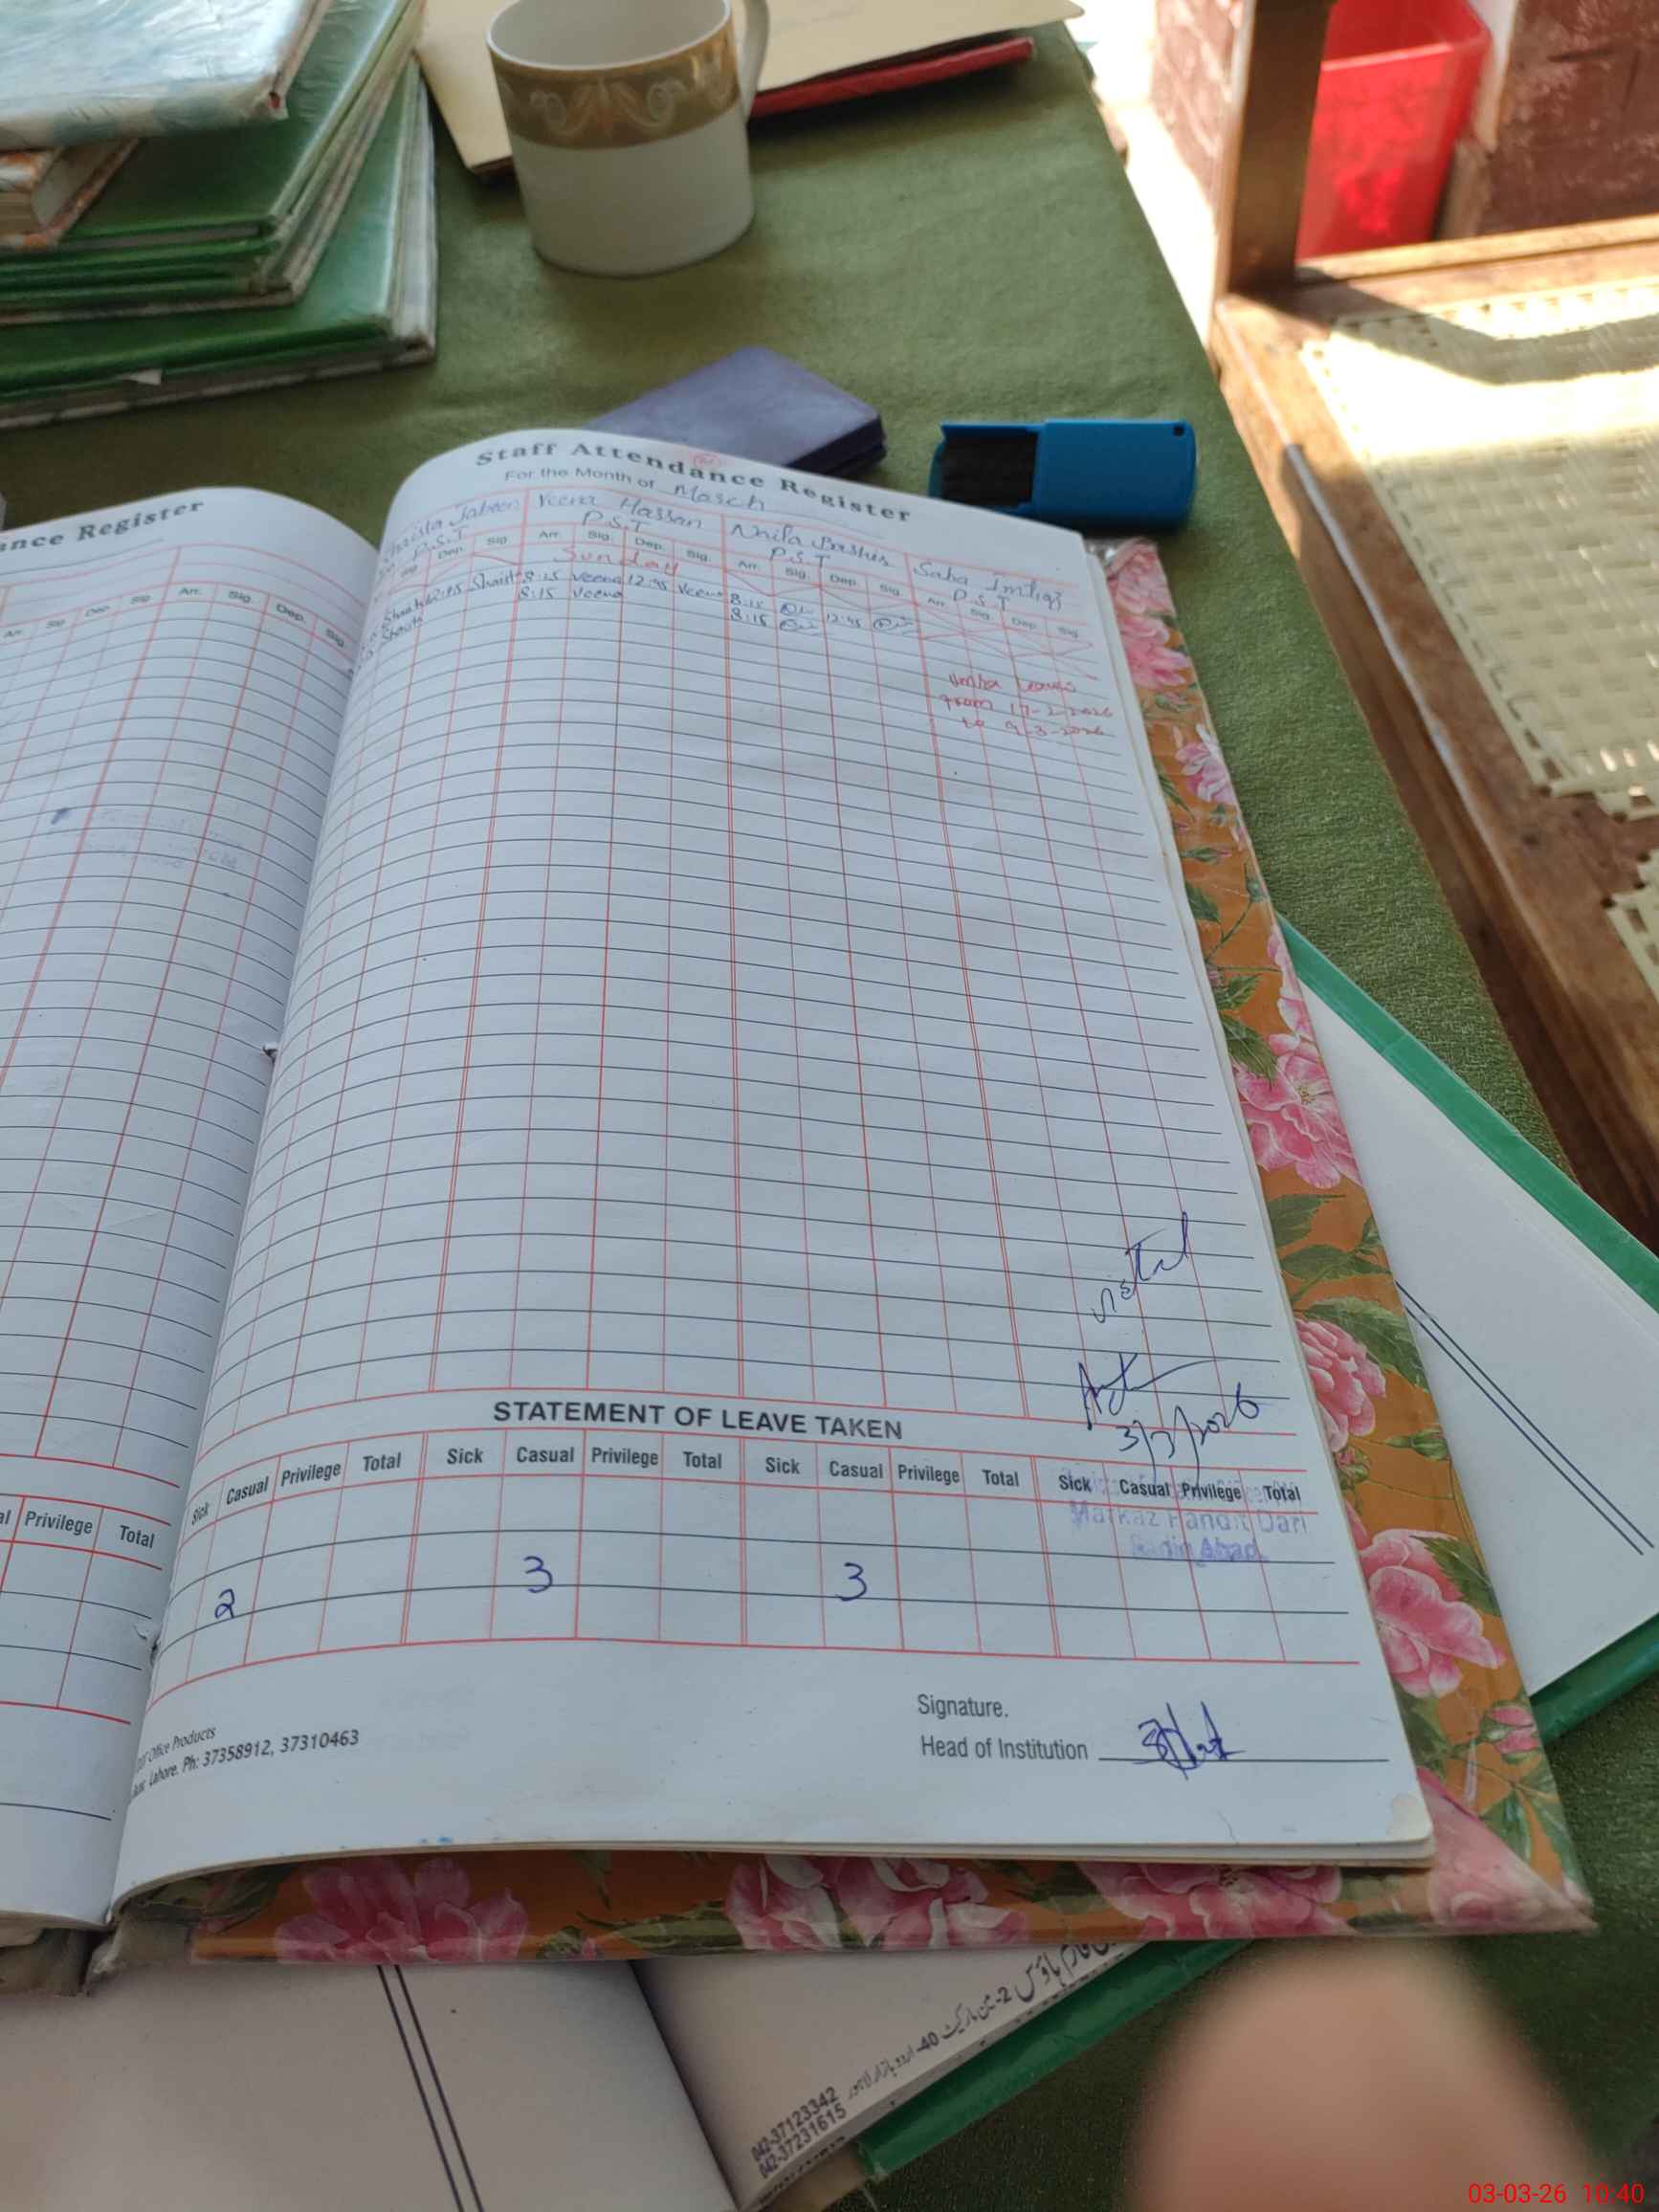 ance Register
Arr. Sig. Dep. Sig. Arr. Sig. Dep. Sig.
Staff Attendance Register
For the Month of March
Jabeen Veena Hassan Naila Bashir Saba Imtiaz
P.S.T P.S.T P.S.T P.S.T
Sig Dep. Sig Arr. Sig. Dep. Sig. Arr. Sig. Dep. Sig. Arr. Sig. Dep. Sig.
Sunday
12:45 8:15 Veena 12:45 Veena 8:15 12:45
8:15 Veena 8:15
from 17-2-2026
to 9-3-2026
3/3/2026
STATEMENT OF LEAVE TAKEN
Sick Casual Privilege Total Sick Casual Privilege Total Sick Casual Privilege Total Sick Casual Privilege Total
al Privilege Total
Markaz Pandit Dari
2 3 3
Signature.
Head of Institution
Office Products
Lahore. Ph: 37358912, 37310463
042-37123342
042-37231615
03-03-26 10:40